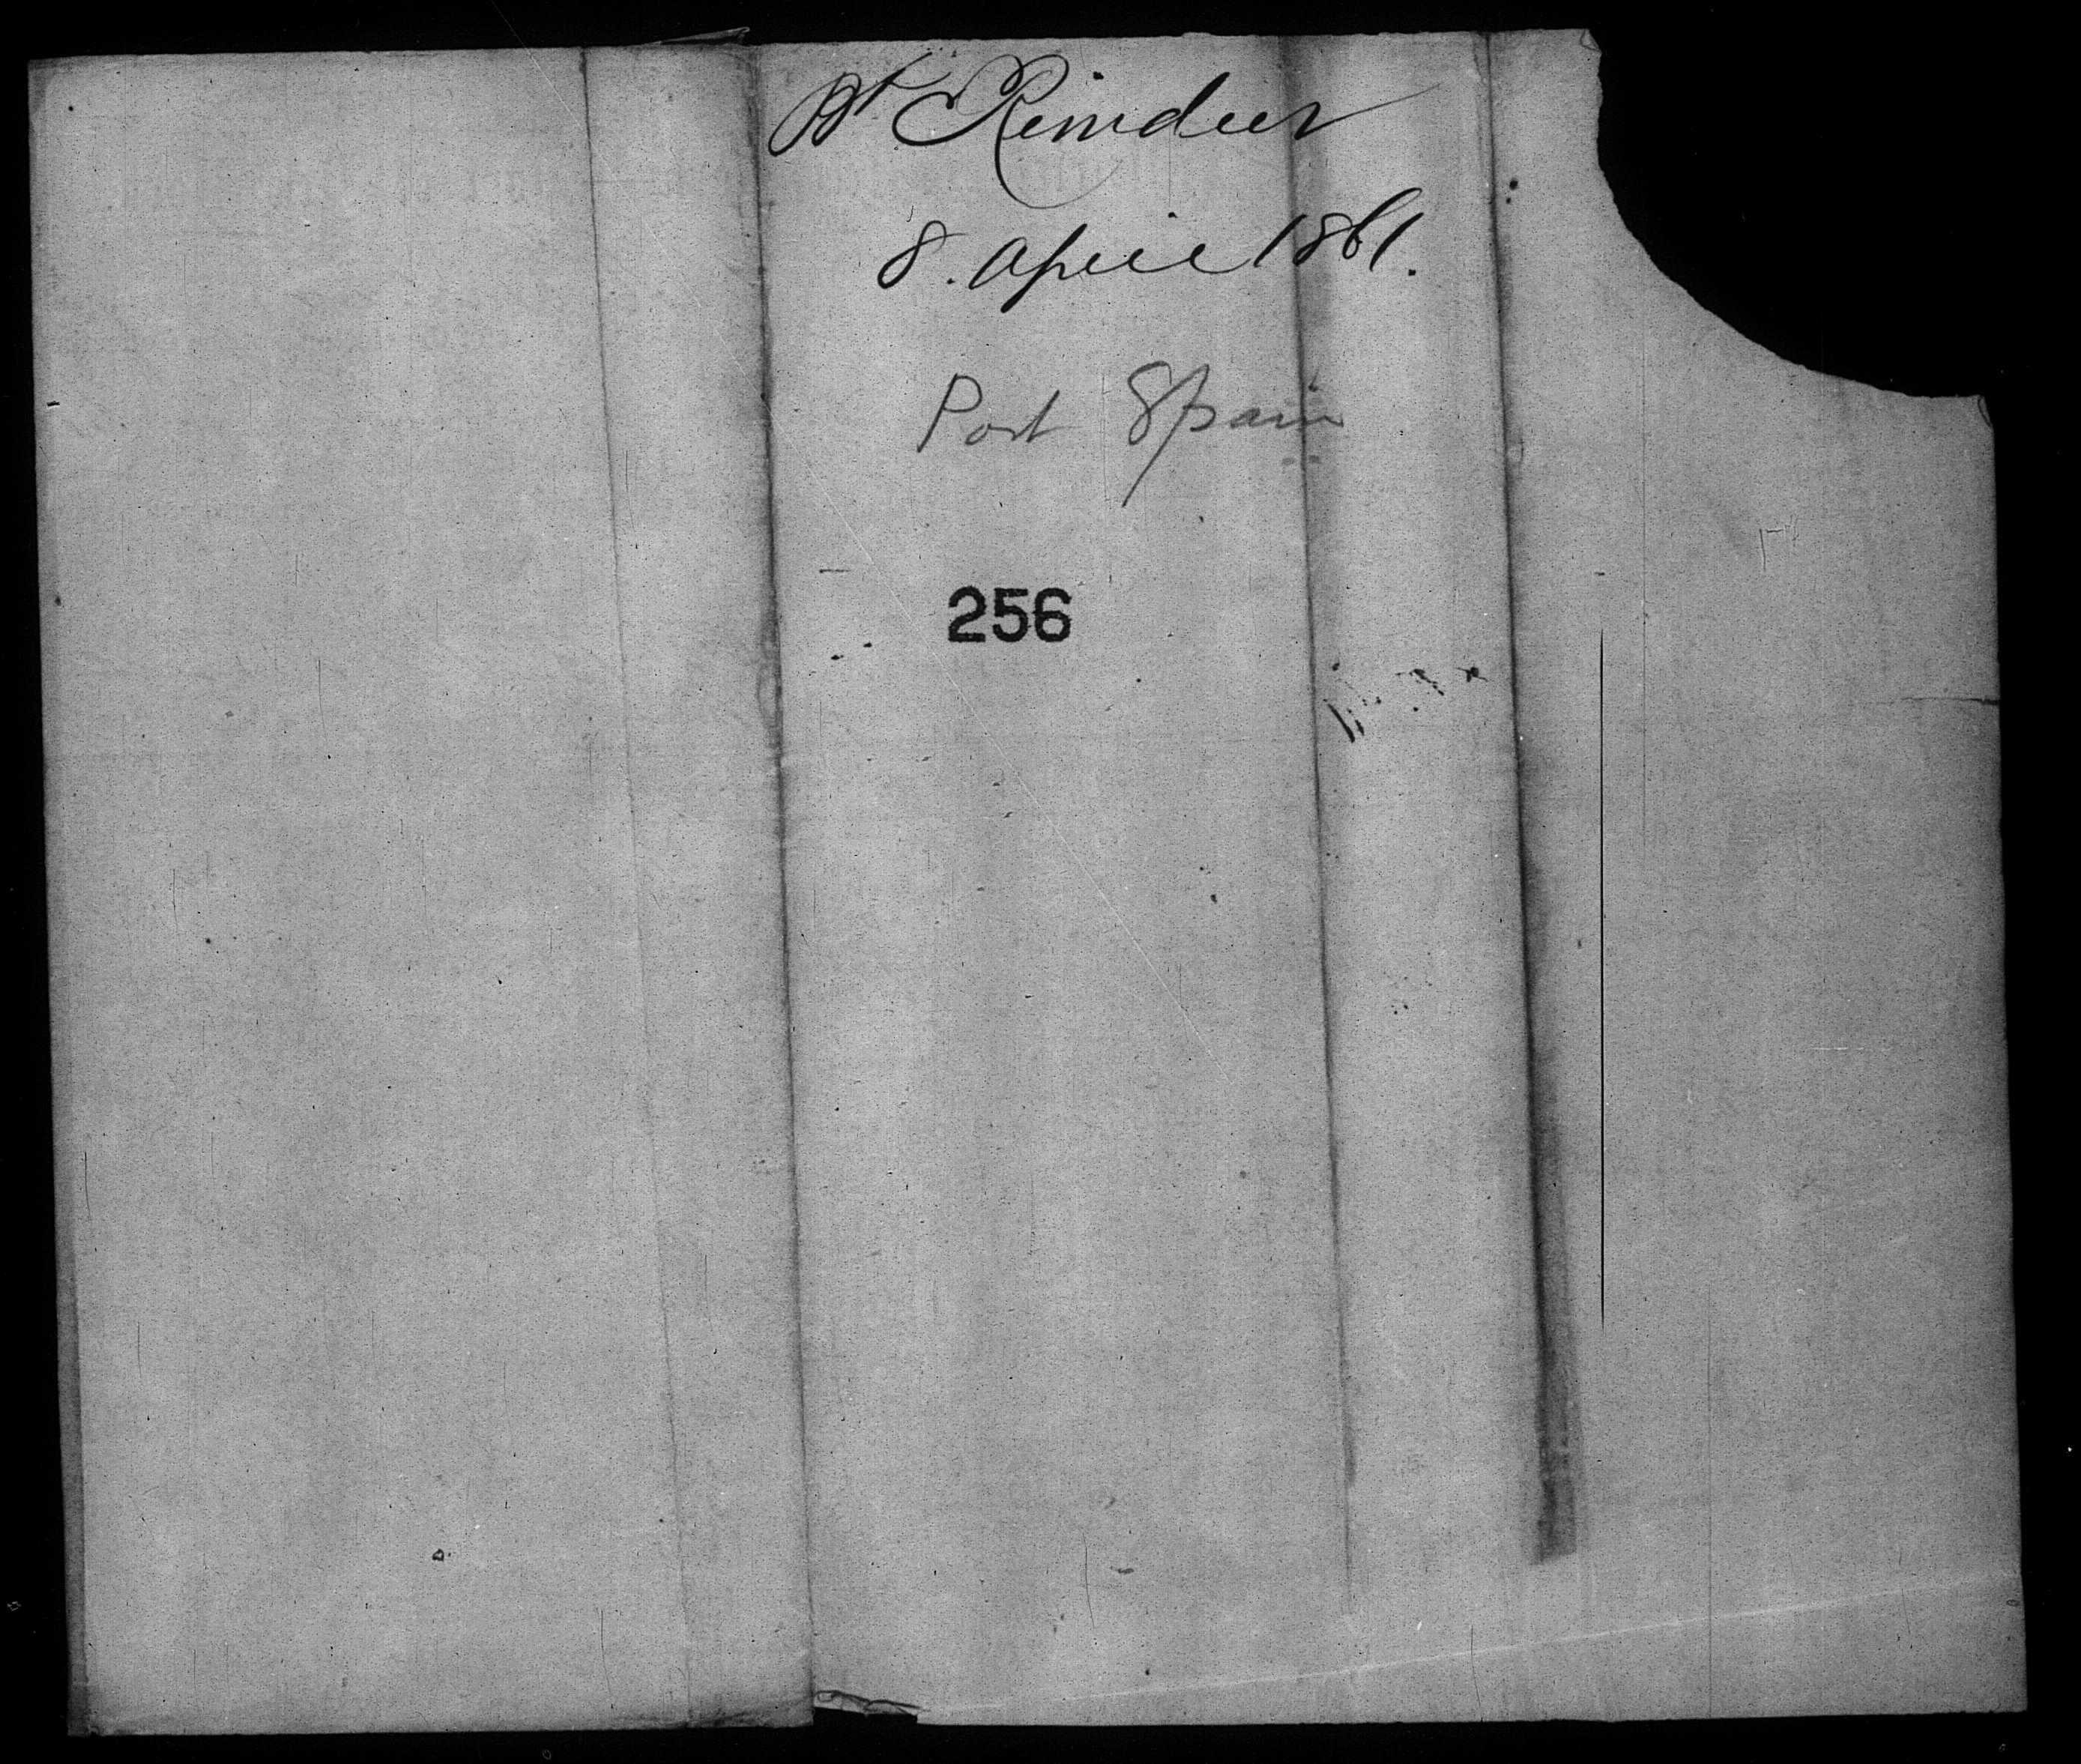 Bk Reindeer
8. April 1861.
Port Spain
256